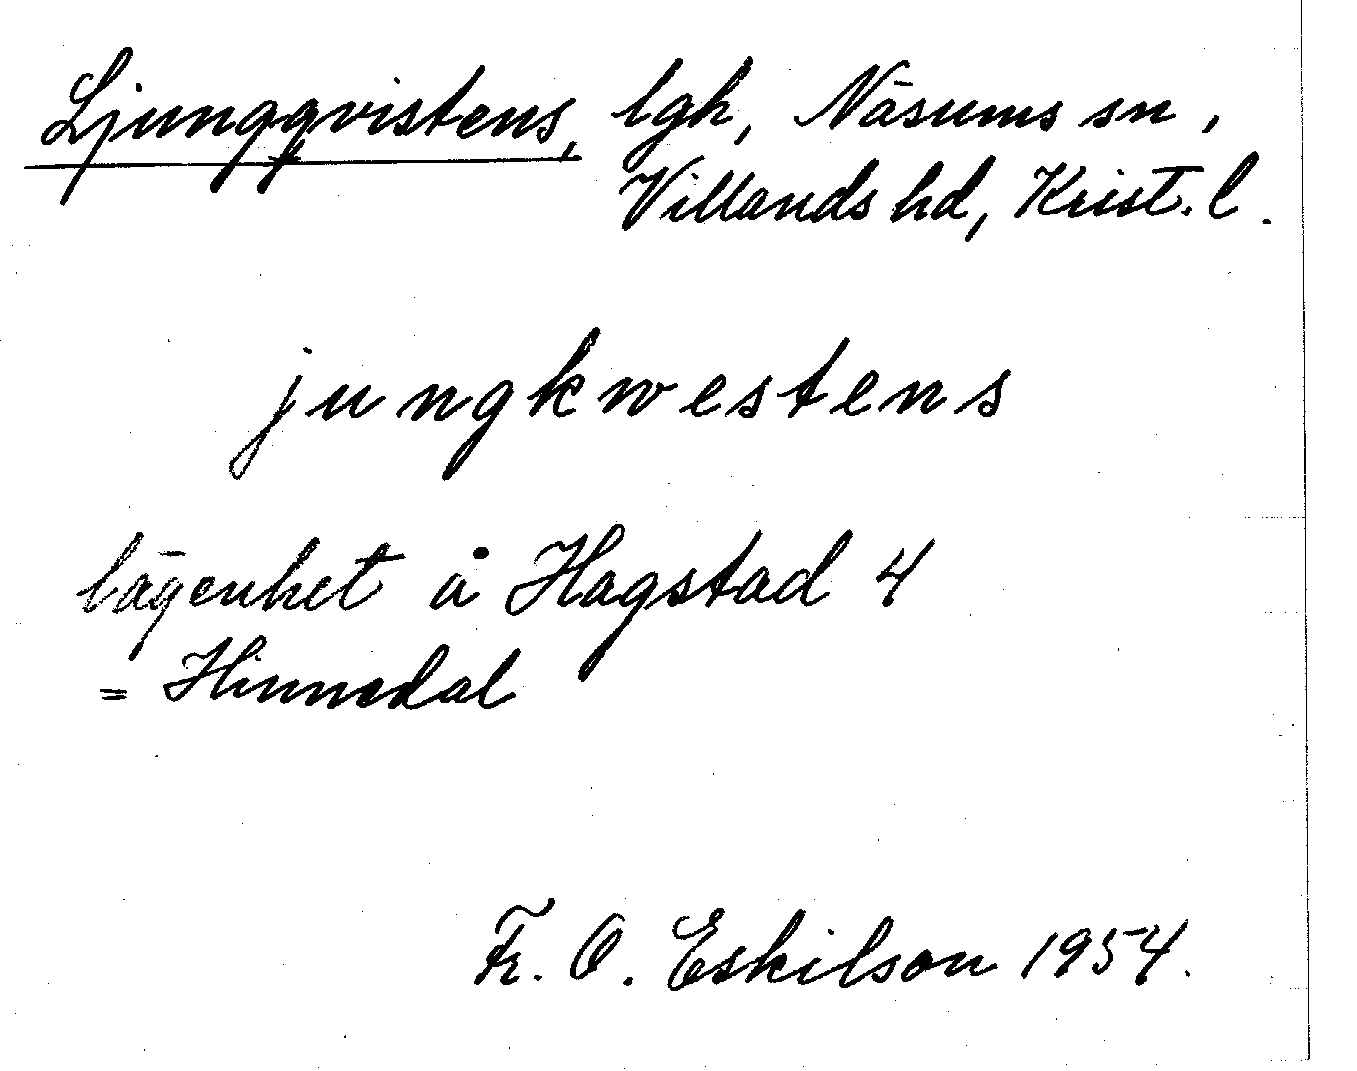 Ljungqvistens, lgh, Näsums sn,
Villands hd, Krist. l.
jungkwestens
lägenhet å Hagstad 4
= Hinnedal
Fr. O. Eskilson 1954.